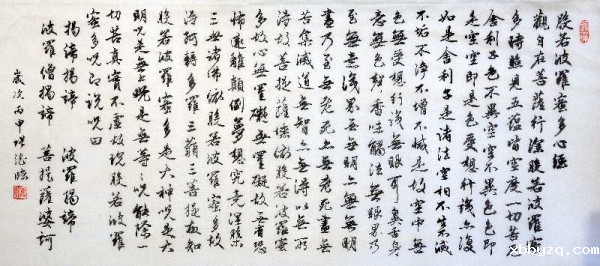 般若波羅蜜多心經
觀自在菩薩行深般若波羅蜜
多時照見五蘊皆空度一切苦厄
舍利子色不異空空不異色色即
是空空即是色受想行識亦復
如是舍利子是諸法空相不生不滅
不垢不淨不增不減是故空中無
色無受想行識無眼耳鼻舌身
意無色聲香味觸法無眼界乃
至無意識界無無明亦無無明
盡乃至無老死亦無老死盡無
苦集滅道無智亦無得以無所
得故菩提薩埵依般若波羅蜜
多故心無罣礙無罣礙故無有恐
怖遠離顛倒夢想究竟涅槃
三世諸佛依般若波羅蜜多故
得阿耨多羅三藐三菩提故知
般若波羅蜜多是大神咒是大
明咒是無上咒是無等等咒能除一
切苦真實不虛故說般若波羅
蜜多咒即說咒曰
揭諦揭諦 波羅揭諦
波羅僧揭諦 菩提薩婆訶
歲次丙申
xbbyzq.com